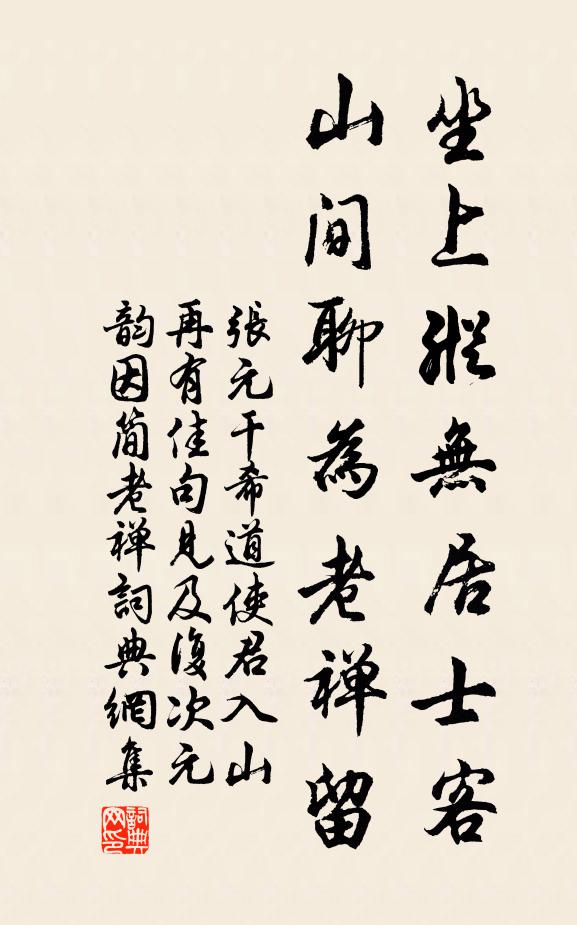 坐上縱無居士客
山間聊為老禅留
張元干希道使君入山
再有佳句見及復次元
韵因简老禅詞典網集
詞典网印